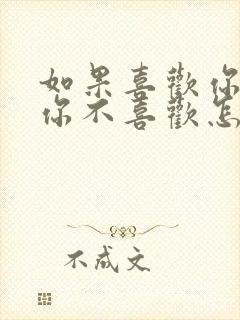 如果喜歡你
你不喜歡怎
不成文